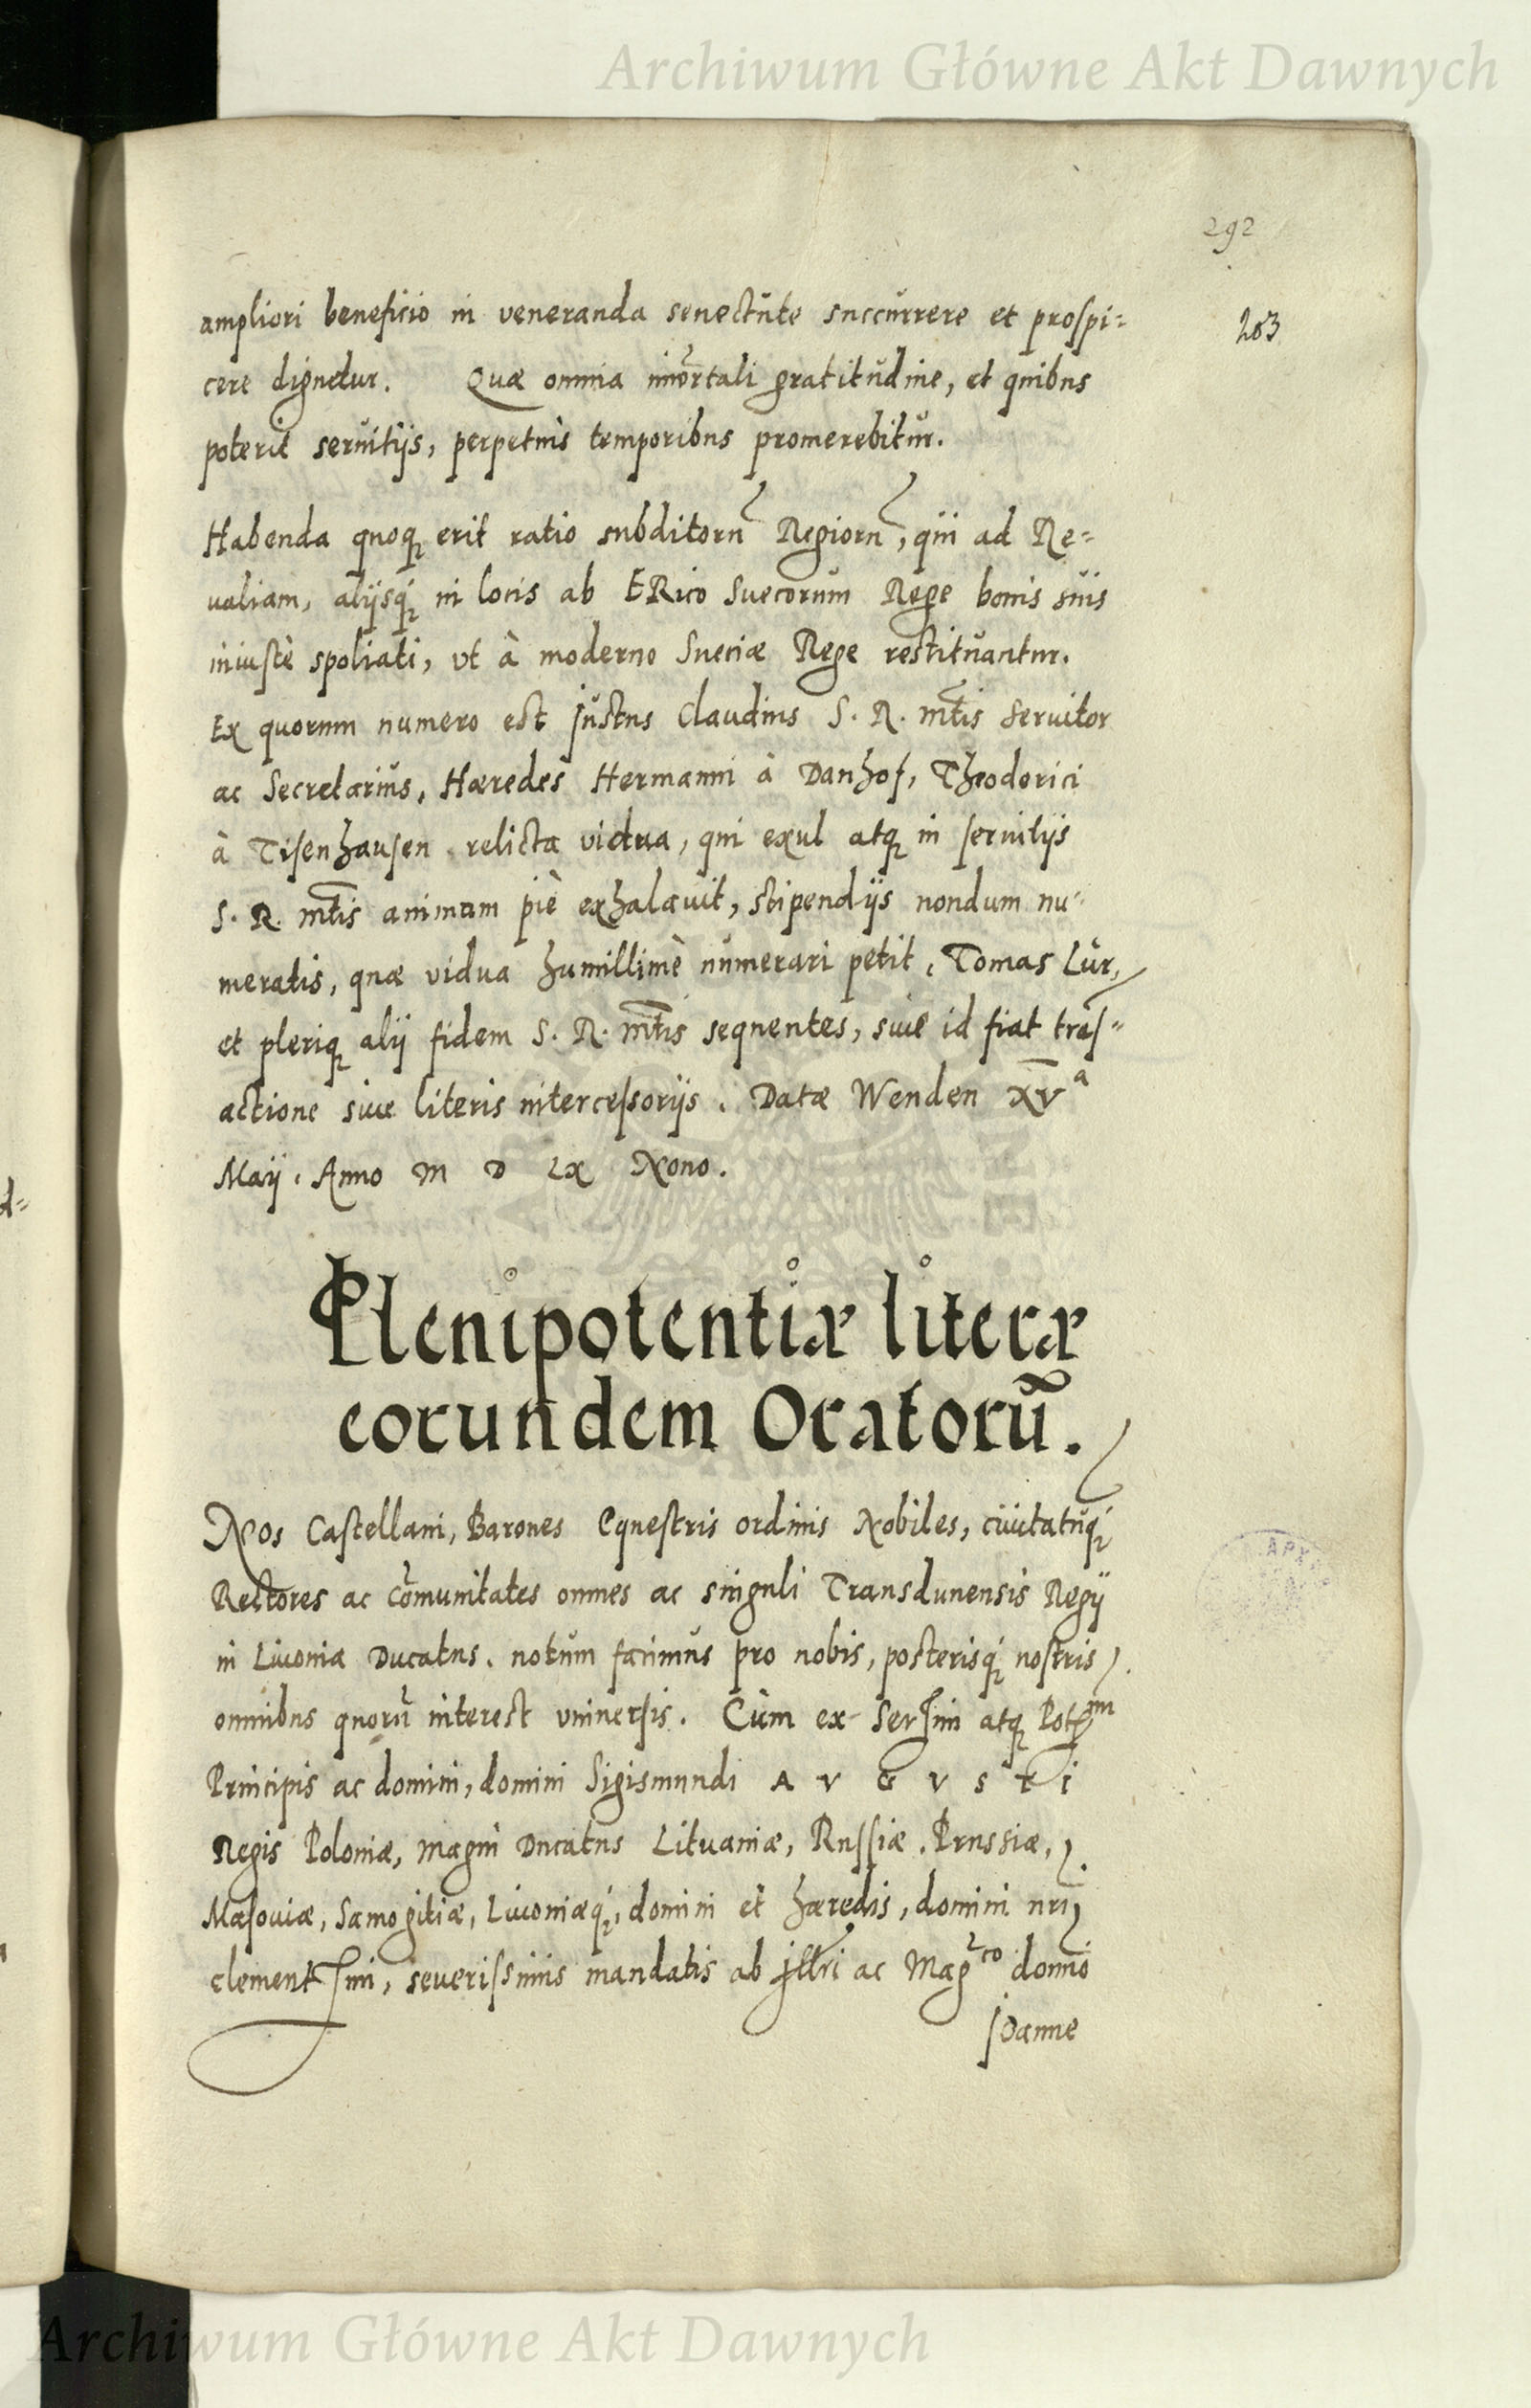 Archiwum Główne Akt Dawnych
292
203
ampliori beneficio in veneranda senectute succurrere et prospi=
cere dignetur. Quæ omnia im̄ortali gratitudine, et quibus
poterit seruitijs, perpetuis temporibus promerebitur.
Habenda quoq; erit ratio subditorū Regiorū, qui ad Re=
ualiam, alijsq; in locis ab ERico Suecorum Rege bonis suis
iniustè spoliati, vt à moderno Sueciæ Rege restituantur.
Ex quorum numero est Justus Claudius S. R. Mtis Seruitor
ac Secretarius, Hæredes Hermanni à Danhof, Theodorici
à Tisenhausen relicta vidua, qui exul atq; in seruitijs
S. R. Mtis animam piè exhalauit, stipendijs nondum nu=
meratis, quæ vidua humillimè numerari petit, Tomas Lur,
et pleriq; alij fidem S. R. Mtis sequentes, siue id fiat tras=
actione siue literis intercessorijs. Datæ Wenden XV a
Maij. Anno M D LX Nono.
Plenipotentiæ literæ
eorundem Oratorū.
Nos Castellani, Barones Equestris ordinis Nobiles, ciuitatuq;
Rectores ac com̄unitates omnes ac singuli Transdunensis Regij
in Liuonia Ducatus. notum facimus pro nobis, posterisq; nostris
omnibus quorū interest vniuersis. Cùm ex Serssimi atq; Potmi
Principis ac domini, domini Sigismundi A V G V S T I
Regis Poloniæ, Magni Ducatus Lituaniæ, Russiæ, Prussiæ,
Masouiæ, Samogitiæ, Liuoniæq;, domini et hæredis, domini nri
clementssimi, seuerissimis mandatis ab Jllri ac Magco domno
Joanne
Archiwum Główne Akt Dawnych